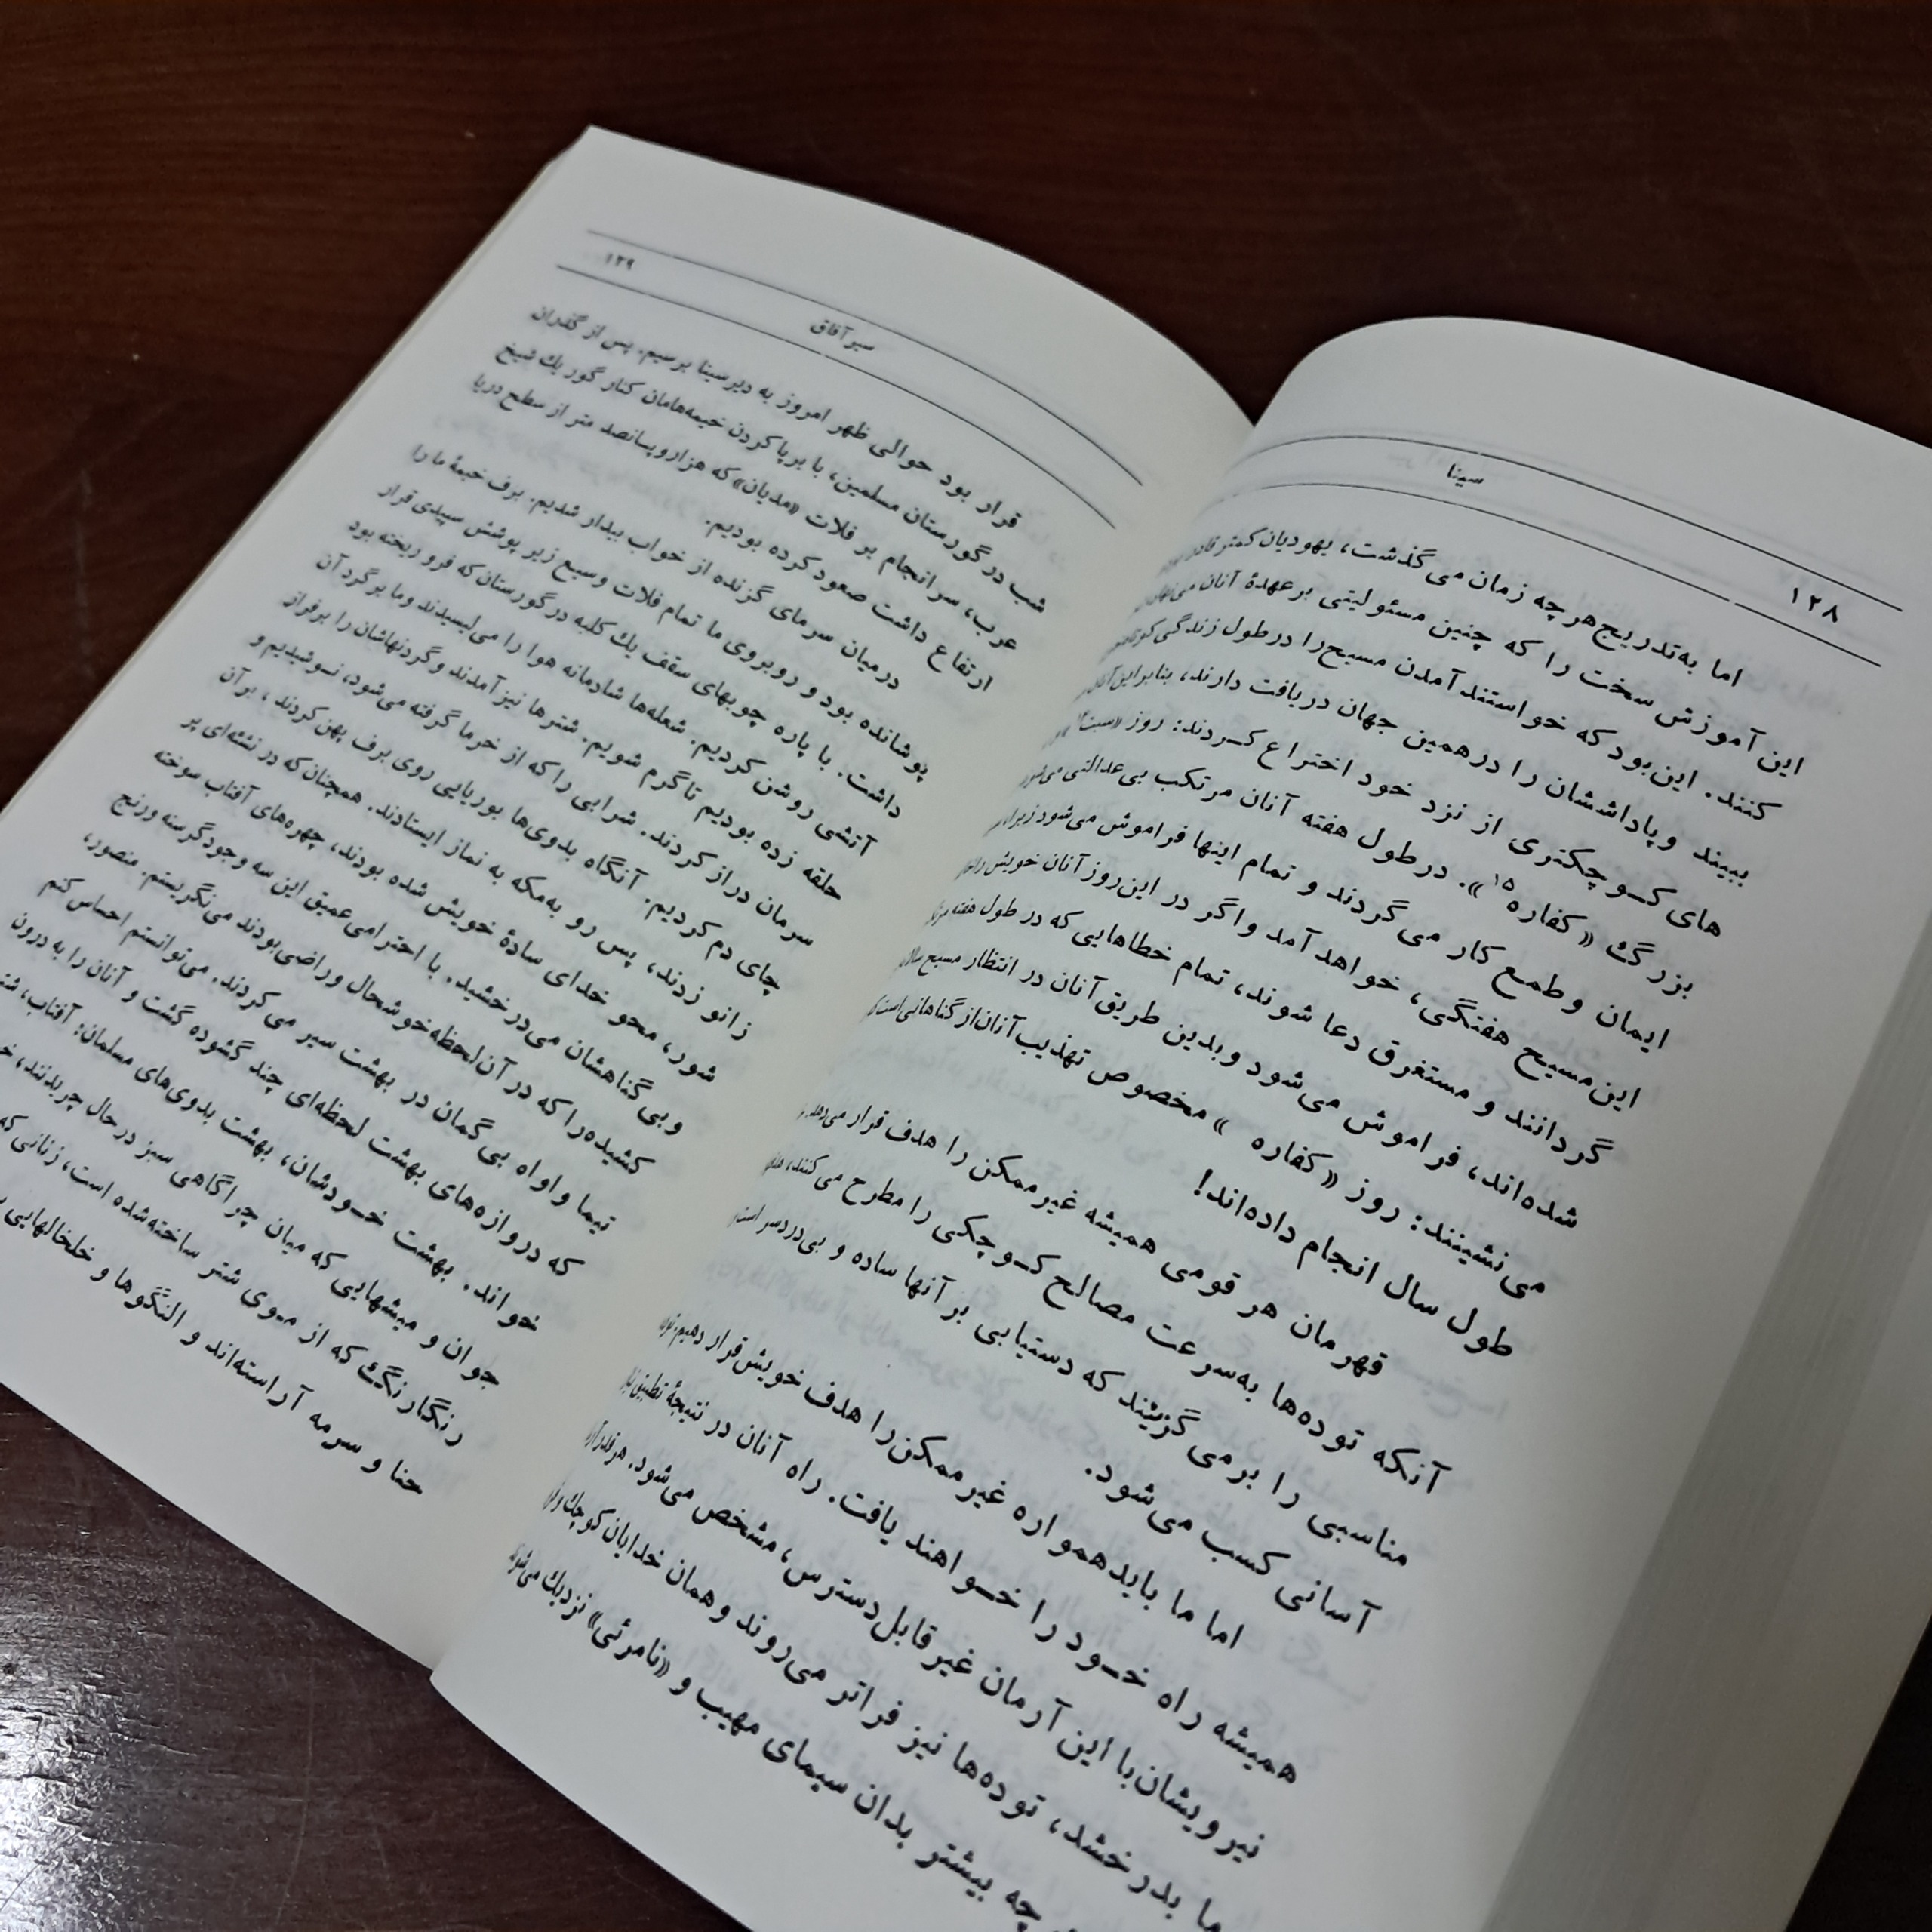 ۱۲۸
سینا
اما به‌تدریج هرچه زمان می‌گذشت، یهودیان کمتر
این آموزش سخت را که چنین مسئولیتی برعهدهٔ آنان
کنند. این‌بود که خواستند آمدن مسیح را درطول زندگی
ببیند وپاداششان را درهمین جهان دریافت دارند، بنابراین
های کوچکتری از نزد خود اختراع کردند: روز «سبت»
بزرگ «کفاره۱۵». درطول هفته آنان مرتکب بی‌عدالتی
ایمان وطمع کار می‌گردند و تمام اینها فراموش می‌شود
این‌مسیح هفتگی، خواهد آمد واگر در این‌روز آنان خویش را
گردانند و مستغرق دعا شوند، تمام خطاهایی که در طول هفته
شده‌اند، فراموش می‌شود وبدین طریق آنان در انتظار مسیح
می‌نشینند: روز «کفاره» مخصوص تهذیب آنان‌از گناهانی‌است
طول سال انجام داده‌اند!
قهرمان هر قومی همیشه غیرممکن را هدف قرار می‌دهد
آنکه توده‌ها به‌سرعت مصالح کوچکی را مطرح می‌کنند،
مناسبی را برمی‌گزینند که دستیابی برآنها ساده و بی‌دردسر
آسانی کسب می‌شود.
اما ما باید همواره غیرممکن را هدف خویش‌قرار دهیم.
همیشه راه خود را خواهند یافت. راه آنان در نتیجهٔ تطبیق
نیرویشان‌با این آرمان غیرقابل‌دسترس، مشخص می‌شود.
ما بدرخشد، توده‌ها نیز فراتر می‌روند وهمان خدایان کوچک
چه بیشتر بدان سیمای مهیب و «نامرئی» نزدیک
سیر آفاق
۱۲۹
قرار بود حوالی ظهر امروز به دیرسینا برسیم. پس از گذران
شب در گورستان مسلمین، با برپاکردن خیمه‌هامان کنار گور یک شیخ
عرب، سرانجام بر فلات «مدیان» که هزاروپانصد متر از سطح دریا
ارتفاع داشت صعود کرده بودیم.
درمیان سرمای گزنده از خواب بیدار شدیم. برف خیمهٔ ما را
پوشانده بود و روبروی ما تمام فلات وسیع زیر پوشش سپیدی قرار
داشت. با پاره چوبهای سقف یک کلبه در گورستان که فرو ریخته بود
آتشی روشن کردیم. شعله‌ها شادمانه هوا را می‌لیسیدند وما برگرد آن
حلقه زده بودیم تا گرم شویم. شترها نیز آمدند وگردنهاشان را برفراز
سرمان دراز کردند. شرابی را که از خرما گرفته می‌شود، نوشیدیم و
چای دم کردیم. آنگاه بدوی‌ها بوریایی روی برف پهن کردند، برآن
زانو زدند، پس رو به‌مکه به نماز ایستادند. همچنان که در نشئه‌ای پر
شور، محو خدای سادهٔ خویش شده بودند، چهره‌های آفتاب سوخته
وبی گناهشان می‌درخشید. با احترامی عمیق این سه وجود گرسنه ورنج
کشیده را که در آن لحظه خوشحال وراضی‌بودند می‌نگریستم. منصور،
تیما واواه بی‌گمان در بهشت سیر می‌کردند. می‌توانستم احساس کنم
که دروازه‌های بهشت لحظه‌ای چند گشوده گشت و آنان را به درون
خواند. بهشت خودشان، بهشت بدوی‌های مسلمان: آفتاب،
جوان و میشهایی که میان چراگاهی سبز درحال چریدند،
رنگارنگ که از موی شتر ساخته‌شده است، زنانی که
حنا و سرمه آراسته‌اند و النگوها و خلخالهایی